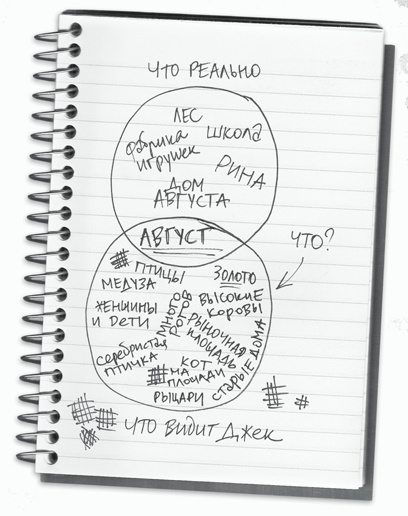 ЧТО РЕАЛЬНО
ЛЕС
ШКОЛА
фабрика
игрушек
РИНА
ДОМ
АВГУСТА
АВГУСТ
ЧТО?
ПТИЦЫ
МЕДУЗА
ЗОЛОТО
ЖЕНЩИНЫ
И ДЕТИ
МНОГО
РОТОВ
ВЫСОКИЕ
КОРОВЫ
РЫНОЧНАЯ
ПЛОЩАДЬ
СТАРЫЕ ДОМА
серебристая
птичка
КОТ
НА
ПЛОЩАДИ
РЫЦАРИ
ЧТО ВИДИТ ДЖЕК